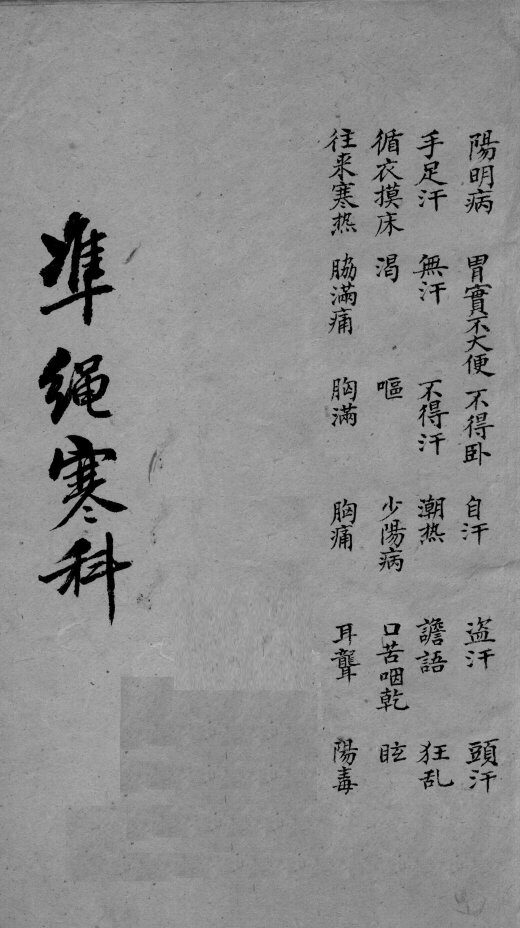 陽明病 胃實不大便 不得卧 自汗 盗汗 頭汗
手足汗 無汗 不得汗 潮热 譫語 狂乱
循衣摸床 渴 嘔 少陽病 口苦咽乾 眩
往来寒热 脇滿痛 胸滿 胸痛 耳聾 陽毒
準绳寒科